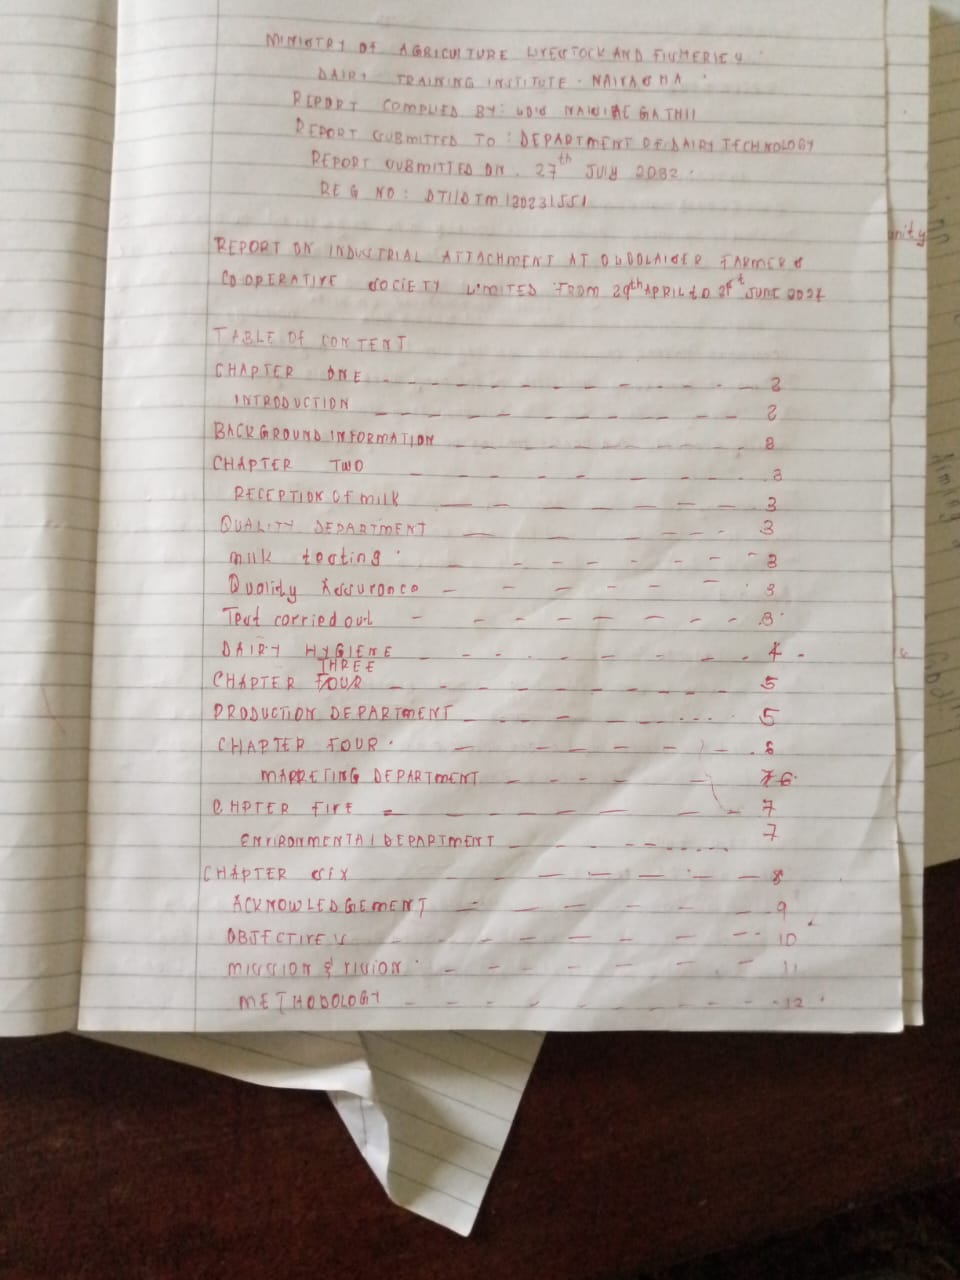 MINISTRY OF AGRICULTURE LIVESTOCK AND FISHERIES
DAIRY TRAINING INSTITUTE - NAIVASHA
REPORT COMPLIED BY: GATHII
REPORT SUBMITTED TO : DEPARTMENT OF DAIRY TECHNOLOGY
REPORT SUBMITTED ON . 27th JULY
REG NO :
REPORT ON INDUSTRIAL ATTACHMENT AT FARMERS
CO OPERATIVE SOCIETY LIMITED FROM 29th APRIL to JUNE
TABLE OF CONTENT
CHAPTER ONE 2
INTRODUCTION 2
BACKGROUND INFORMATION 2
CHAPTER TWO 3
RECEPTION Of milk 3
QUALITY DEPARTMENT 3
milk testing 3
Quality Assurance 3
Test carried out 3
DAIRY HYGIENE 4
THREE
CHAPTER FOUR 5
PRODUCTION DEPARTMENT 5
CHAPTER FOUR 6
MARKETING DEPARTMENT 7 6
CHPTER FIVE 7
ENVIRONMENTAl DEPARTMENT 7
CHAPTER SIX 8
ACKNOWLEDGEMENT 9
OBJECTIVES 10
MISSION & VISION 11
METHODOLOGY 12
unity